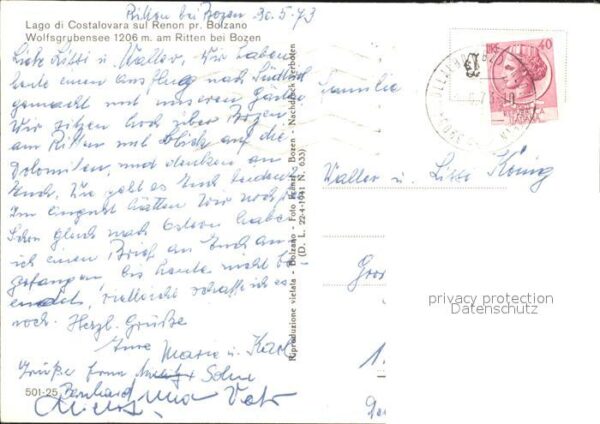 Ritten bei Bozen 30.5.73
Lago di Costalovara sul Renon pr. Bolzano
Wolfsgrubensee 1206 m. am Ritten bei Bozen
Liebe Lissi u. Walter, Wir haben
heute einen Ausflug nach Südtirol
gemacht mit unseren
Wir sitzen hoch über Bozen
am Ritten mit Blick auf die
Dolomiten, und denken an
Euch. Wie geht es Euch beiden
Im August hätten wir noch
Schon gleich nach Ostern habe
ich einen Brief an Euch an
gefangen, bis heute nicht be
endet, vielleicht schaffe ich es
noch. Herzl. Grüße
Eure Maria u. Karl
Grüße Sohn
Bernhard
Vater
501-25
Riproduzione vietata - Bolzano - Foto - Bozen - Nachdruck verboten
(D. L. 22-4-1941 N. 633)
40
Familie
Walter u. Lissi König
privacy protection
Datenschutz
1.